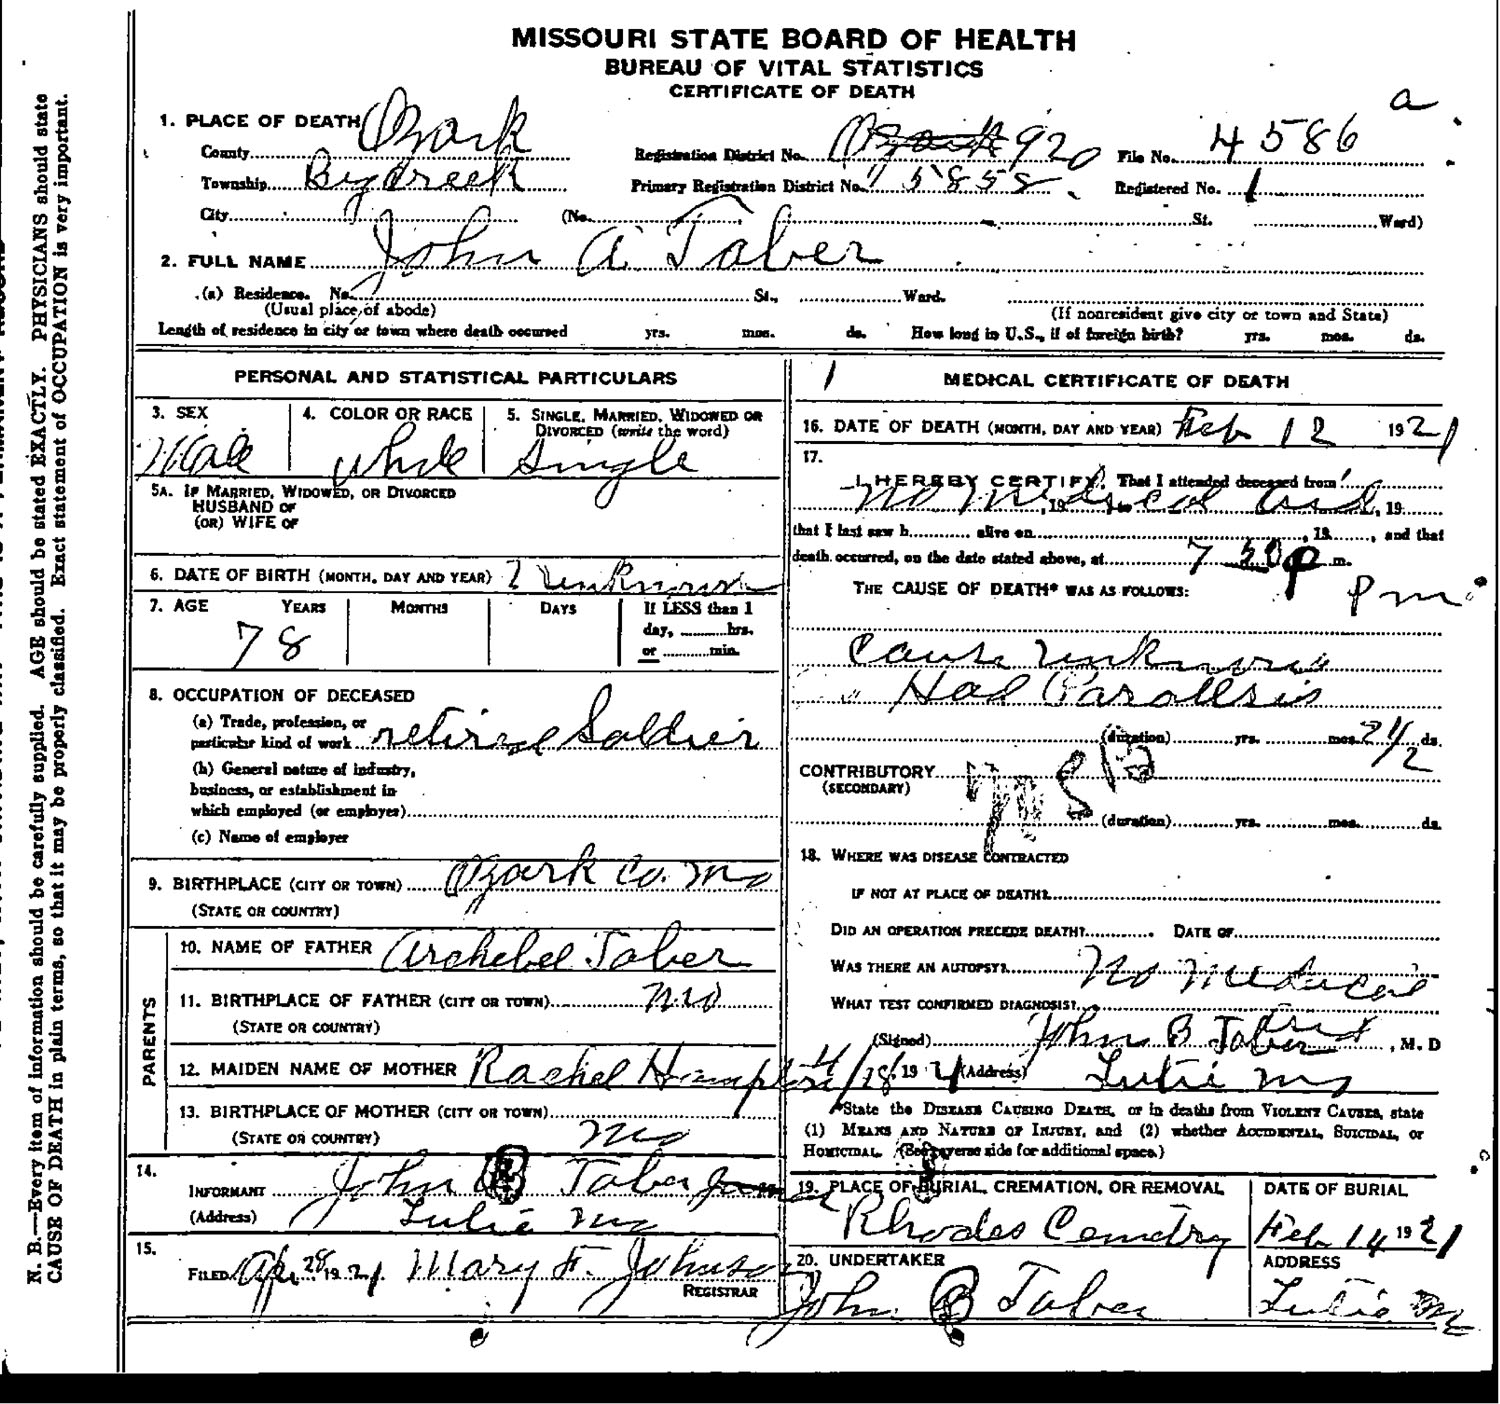 MISSOURI STATE BOARD OF HEALTH
BUREAU OF VITAL STATISTICS
CERTIFICATE OF DEATH
a
1. PLACE OF DEATH
County Ozark Registration District No. Ozark 920 File No. 4586
Township Big Creek Primary Registration District No. 5858 Registered No. 1
City (No. St. Ward)
2. FULL NAME John A Taber
(a) Residence. No. St., Ward.
(Usual place of abode) (If nonresident give city or town and State)
Length of residence in city or town where death occurred yrs. mos. ds. How long in U.S., if of foreign birth? yrs. mos. ds.
PERSONAL AND STATISTICAL PARTICULARS
3. SEX 4. COLOR OR RACE 5. SINGLE, MARRIED, WIDOWED OR
DIVORCED (write the word)
Male white Single
5A. IF MARRIED, WIDOWED, OR DIVORCED
HUSBAND OF
(OR) WIFE OF
6. DATE OF BIRTH (MONTH, DAY AND YEAR) ? unknown
7. AGE YEARS MONTHS DAYS If LESS than 1
day, hrs.
or min.
78
8. OCCUPATION OF DECEASED
(a) Trade, profession, or
particular kind of work retired Soldier
(b) General nature of industry,
business, or establishment in
which employed (or employer)
(c) Name of employer
9. BIRTHPLACE (CITY OR TOWN) Ozark Co. Mo
(STATE OR COUNTRY)
PARENTS
10. NAME OF FATHER Archebel Taber
11. BIRTHPLACE OF FATHER (CITY OR TOWN) Mo
(STATE OR COUNTRY)
12. MAIDEN NAME OF MOTHER Rachel
13. BIRTHPLACE OF MOTHER (CITY OR TOWN)
(STATE OR COUNTRY) Mo
14.
INFORMANT John B Taber
(Address) Lutie Mo
15.
FILED Apr 28 1921 Mary F. Johnson
REGISTRAR
1 MEDICAL CERTIFICATE OF DEATH
16. DATE OF DEATH (MONTH, DAY AND YEAR) Feb 12 1921
17.
I HEREBY CERTIFY, That I attended deceased from
no medical aid, 19 to , 19
that I last saw h alive on , 19 , and that
death occurred, on the date stated above, at 7 30 p m.
THE CAUSE OF DEATH* WAS AS FOLLOWS: P m
Cause unknown
Had Paralisis
(duration) yrs. mos. 2 1/2 ds.
CONTRIBUTORY
(SECONDARY)
(duration) yrs. mos. ds.
18. WHERE WAS DISEASE CONTRACTED
IF NOT AT PLACE OF DEATH?
DID AN OPERATION PRECEDE DEATH? DATE OF
WAS THERE AN AUTOPSY? No Medical
WHAT TEST CONFIRMED DIAGNOSIS?
(Signed) John B Taber, M. D
4/18 1921 (Address) Lutie Mo
*State the DISEASE CAUSING DEATH, or in deaths from VIOLENT CAUSES, state
(1) MEANS AND NATURE OF INJURY, and (2) whether ACCIDENTAL, SUICIDAL, or
HOMICIDAL. (See reverse side for additional space.)
19. PLACE OF BURIAL, CREMATION, OR REMOVAL DATE OF BURIAL
Rhodes Cemetry Feb 14 1921
20. UNDERTAKER ADDRESS
John B Taber Lutie Mo
N. B.—Every item of information should be carefully supplied. AGE should be stated EXACTLY. PHYSICIANS should state
CAUSE OF DEATH in plain terms, so that it may be properly classified. Exact statement of OCCUPATION is very important.